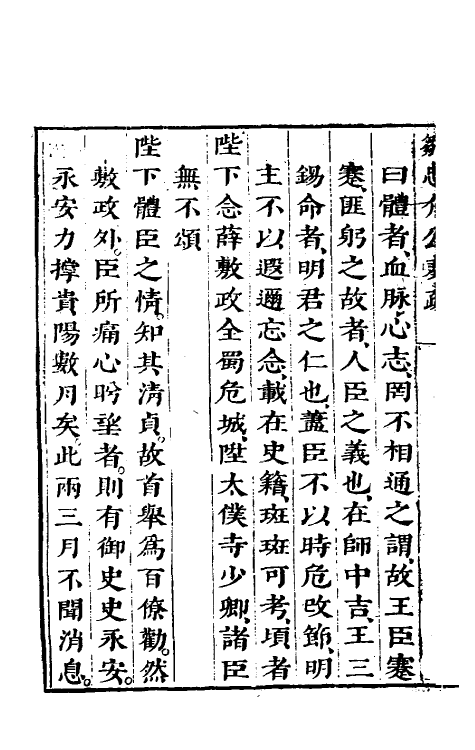 鄒忠介公奏疏
曰體者、血脉心志、罔不相通之謂、故王臣蹇
蹇、匪躬之故者、人臣之義也、在師中吉、王三
錫命者、明君之仁也、蓋臣不以時危改節、明
主不以遐邇忘念、載在史籍、班班可考、頃者
陛下念薛敷政全蜀危城、陞太僕寺少卿、諸臣
無不頌
陛下體臣之情。知其清貞。故首舉爲百僚勸。然
敷政外。臣所痛心盻望者。則有御史史永安。
永安力撐貴陽數月矣。此兩三月不聞消息。